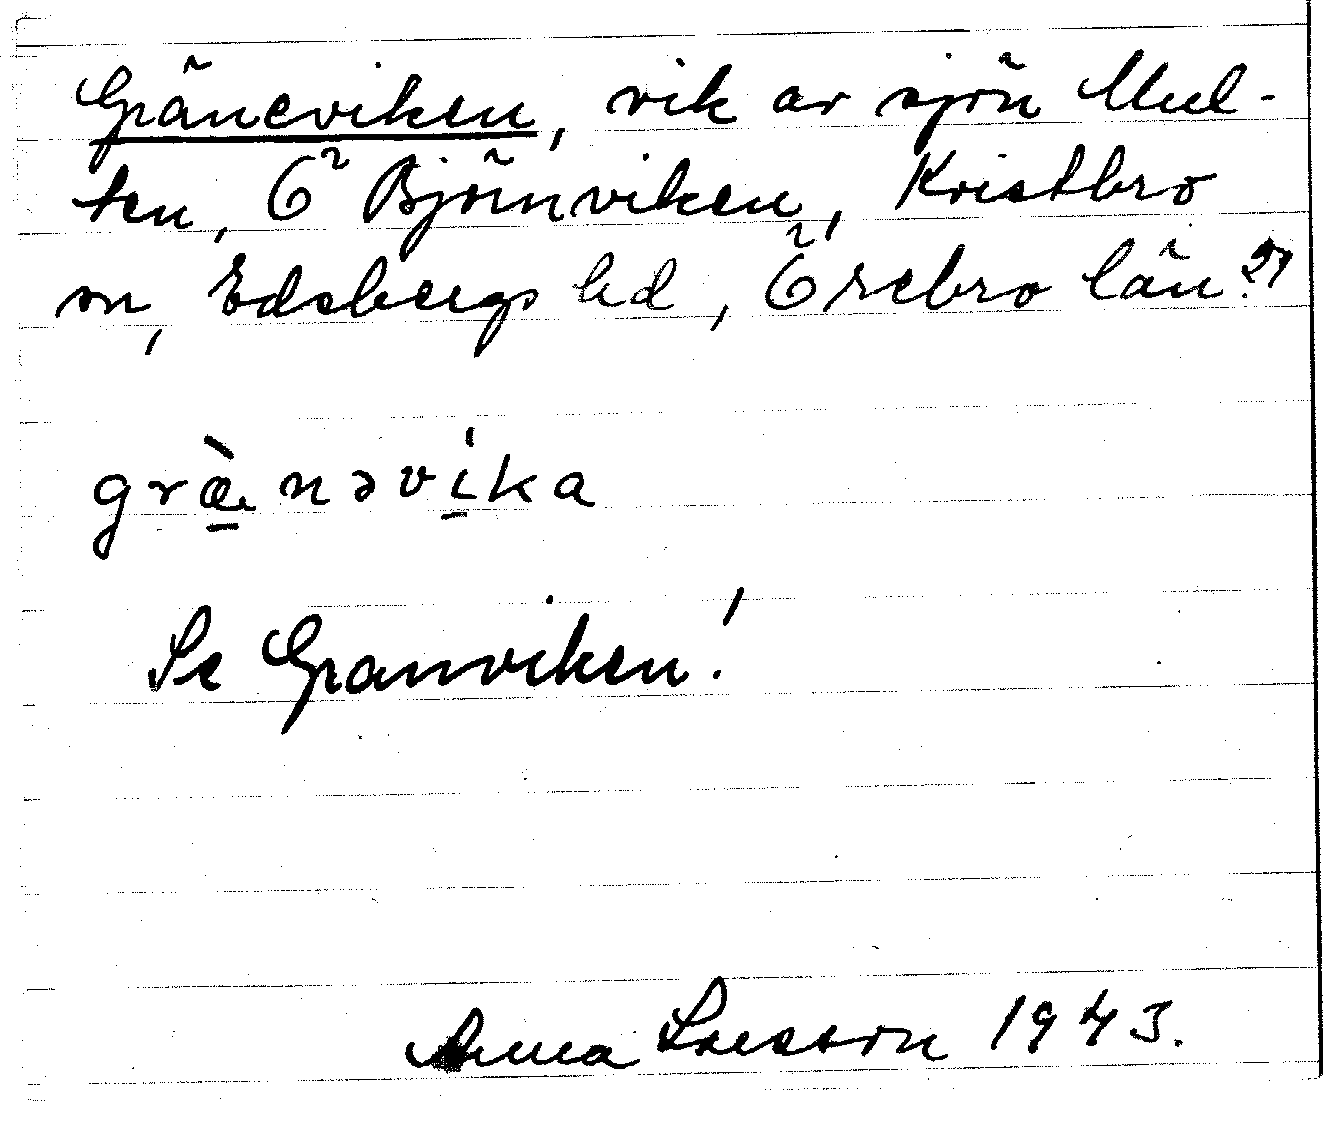 Gräneviken, vik av sjön Mul-
ten, Ö Björnviken, Kvistbro
sn, Edsbergs hd, Örebro län. 27
græ̀nəvíka
Se Granviken!
Anna Larsson 1943.